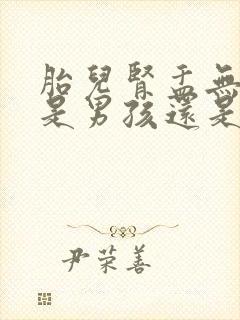 胎兒腎盂無
是男孩還是
尹荣善